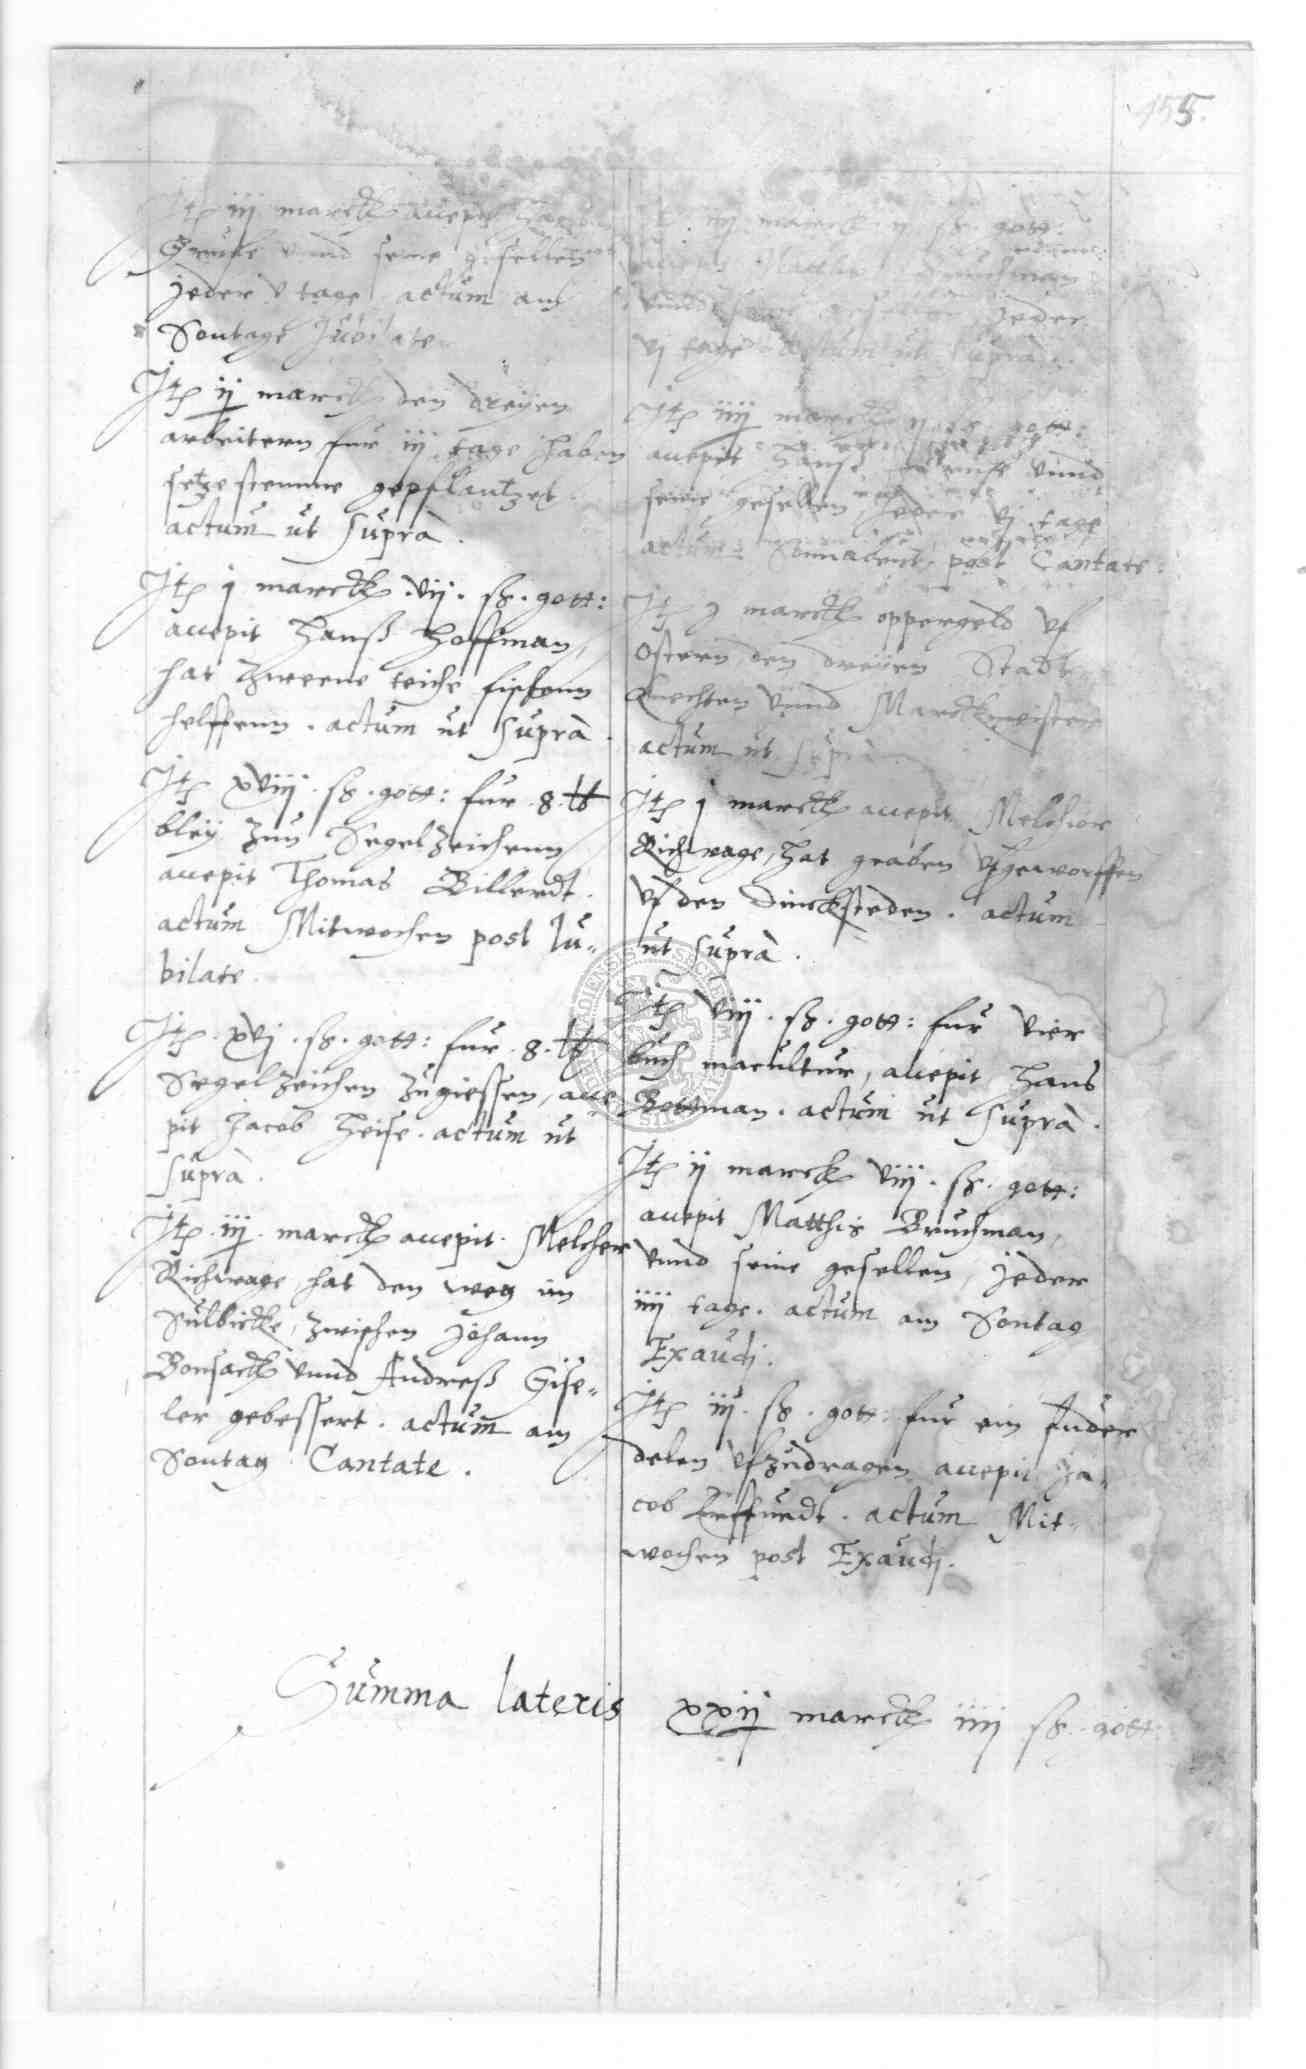 155.
Itē iij marck accepit
Grube vnnd seine gesellen
jeder v tage actum am
Sontage Jubilate
Itē ij marck den dreyen
arbeitern fur iij tage haben
setzestemme gepflantzet.
actum ut supra.
Itē j marck vij. sch. gott:
accepit Hanß Hoffman,
hat zweene teiche fischenn
helffenn. actum ut supra.
Itē xviij. sch. gott: fur 8 lb
bley zun Segelzeichenn
accepit Thomas Billerdt.
actum Mitwochen post Ju-
bilate.
Itē. xvj. sch. gott: fur. 8. lb
Segelzeichen zugiessen, acce-
pit Jacob Heise. actum ut
supra.
Itē. iij. marck accepit Melcher
Richwage, hat den weg im
Sulbicke, zwischen Johann
Bonsack vnnd Andreß Gise-
ler gebessert. actum am
Sontag Cantate.
iiij marck sch. gott:
accepit Bruchman
vnnd seine gesellen, jeder
vj tage actum ut supra.
Itē iiij marck sch. gott:
accepit Hanß vnnd
seine gesellen jeder vj tage
actum Sonnabent post Cantate.
Itē j marck oppergeld vf
Ostern den dreyen Stadt
knechten vnnd Marckmeister
actum ut supra.
Itē j marck accepit Melchior
Richwage, hat graben vfgeworffen
vf den Dincksteden. actum
ut supra.
Itē viij. sch. gott: fur vier
buch maculatur, accepit Hans
Bottman. actum ut supra.
Itē ij marck viij. sch. gott:
accepit Matthis Bruchman,
vnnd seine gesellen, jeder
iiij tage. actum am Sontag
Exaudi.
Itē iij. sch. gott: fur ein fuder
delen vfzudragen accepit Ja-
cob. actum Mit-
wochen post Exaudi.
Summa lateris xxij marck iiij sch. gott